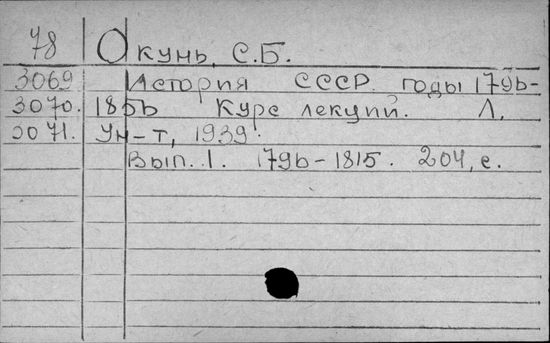 78 Окунь, С.Б.
3069 История СССР годы 1796-
3070. 1856 Курс лекций. Л.
3071. Ун-т, 1939.
Вып. 1. 1796-1815. 204, с.